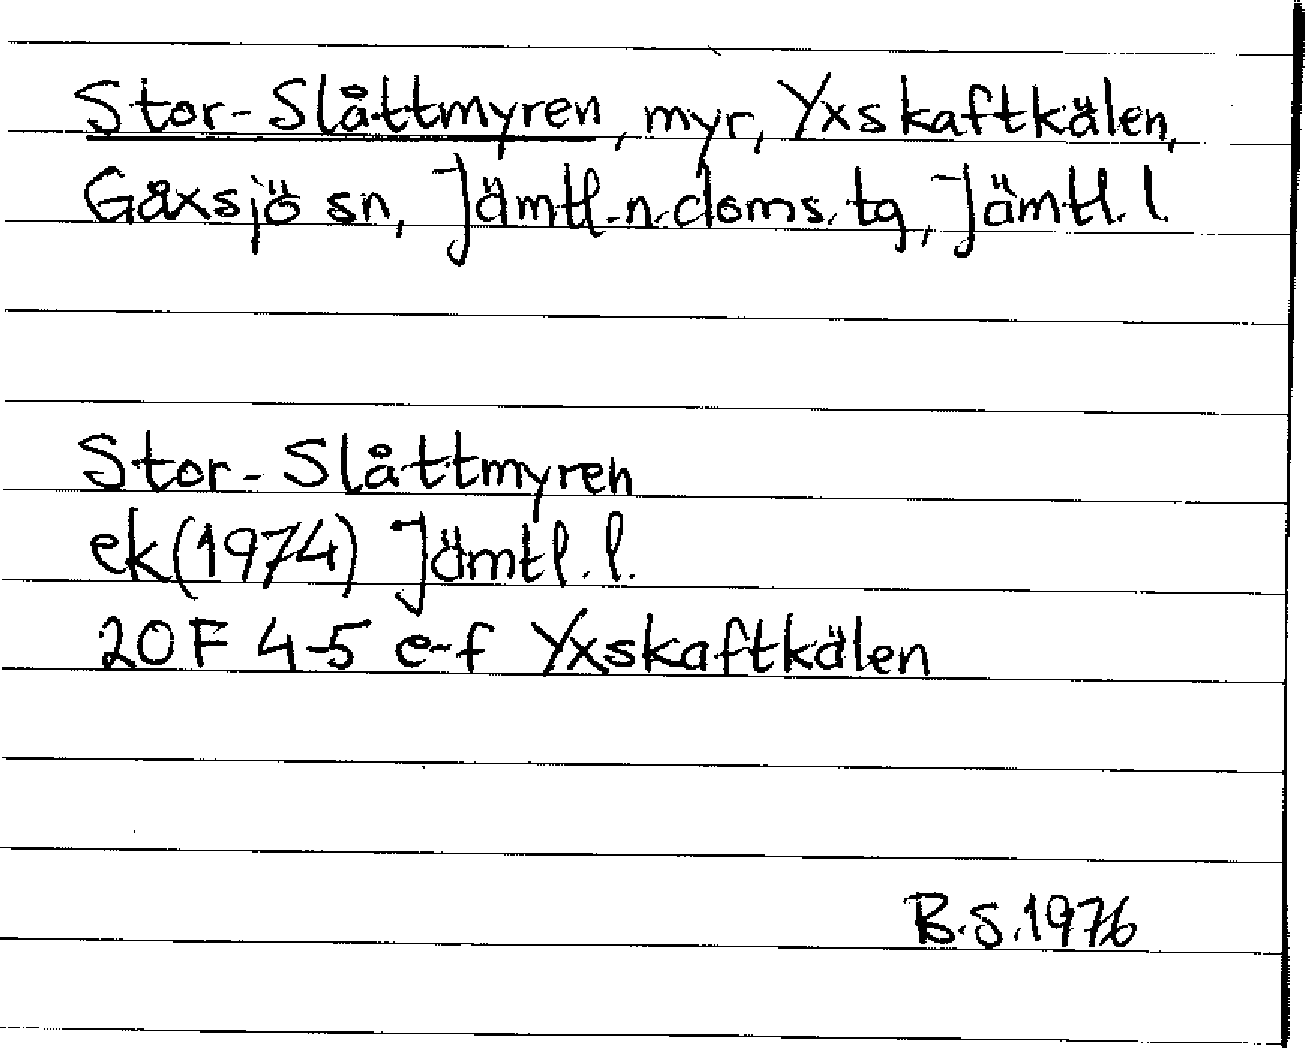 Stor-Slåttmyren, myr, Yxskaftkälen,
Gåxsjö sn, Jämtl.n.doms.tg, Jämtl.l.
Stor-Slåttmyren
ek(1974) Jämtl.l.
20F 4-5 e-f Yxskaftkälen
B.S.1976